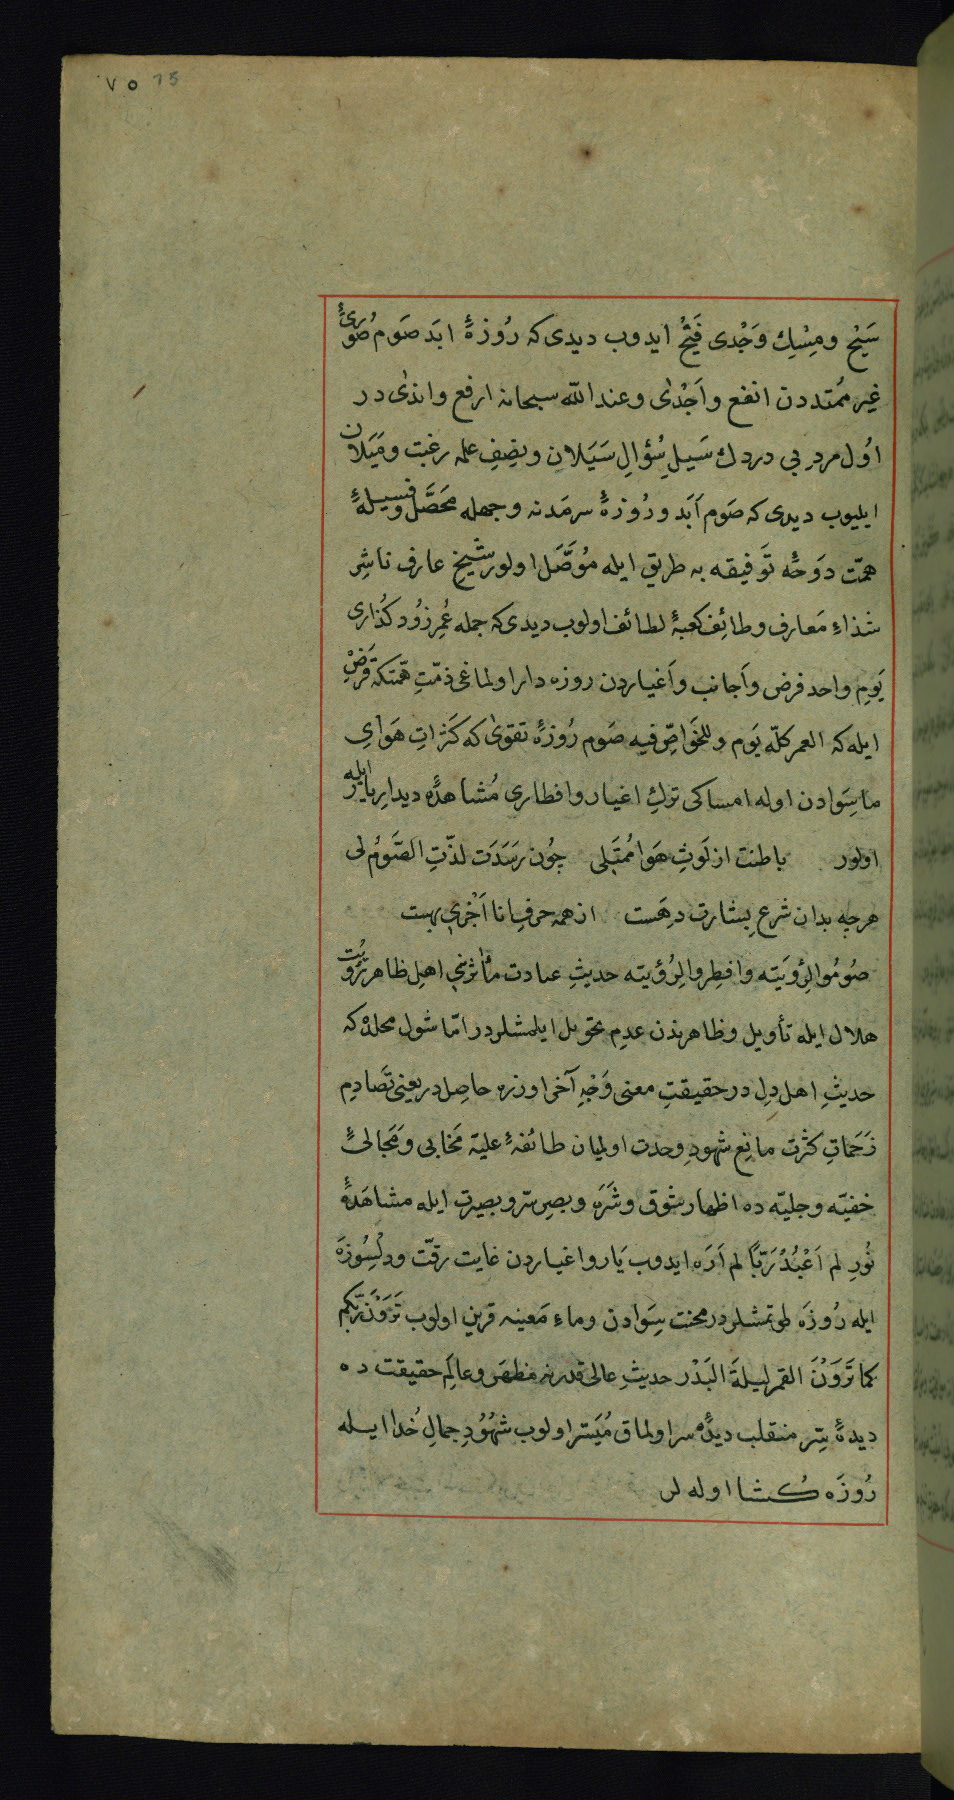 ٧٥ 75
سَيْحِ ومِسْكِ وَجْدى فَيْحِ ايدوب ديدى كه رُوزهٔ ابَد صَوم صُورئ
غير مُمتددن انفع واَجْدٰى وعند الله سبحانه ارفع واندٰى در
اوُل مرد بى دردك سَيلِ سُؤالِ سَيَلان وبضِفِ علمه رغبت ومَيَلان
ايليوب ديدى كه صَوم اَبَد ورُوزهٔ سرمَدنه وجهله محَصَّل وفسيلهٔ
همّت دوَحهٔ تَوفيقه به طريق ايله مُوَصَّل اولور شيخ عارف ناشِر
شذاءِ مَعارف وطائِف كعبهٔ لطائف اولوب ديدى كه جمله عُمرِ زُود كُذارى
يَومِ واحد فرض واَجانب واَغياردن روزه دار اولماغى ذمّتِ همّتكه قَرَضْ
ايله كه العمر كلّه يَوم وللخَواصِّ فيه صَوم رُوزهٔ تقوٰى كه كَثراتِ هَواىِ
ماسِوادن اوله امساكى تركِ اغيار وافطارى مُشاهدهٔ ديدارِ يار ايله
اولور باطنت از لَوثِ هَوا مُمتَلى چُون رسَدَت لذّتِ الصَّومُ لى
هرچه بدان شرع بشارت دهَست از همه حرفِ انا اَجْزى بهست
صُومُوا لِرُؤيَته وافطِروا لِرُؤيته حديثِ عبادت مأثرنى اهلِ ظاهر رُؤيت
هلال ايله تأويل وظاهرندن عدمِ تحويل ايلمشلردر امّا شول محلده كه
حديثِ اهل دِل در حقيقتِ معنى وَجْهِ آخر اوزره حاصِلدر يعنى تَصَادمِ
زَحَماتِ كثرت مانِع شهودِ وحدت اولميان طائفهٔ عليّه مَخابى ومَجالئ
خفيّه وجليّه ده اظهار شوق وشَرَه وبصرِ سرّ وبصيرت ايله مشاهَدهٔ
نُورِ لم اَعْبُدْ رَبّاً لم اَرَه ايدوب يَار واغياردن غايت رقّت ودلسُوزه
ايله رُوزَه طوتمشلردر محنت سِوادن وماءِ مَعينه قرين اولوب تَرَوْنَ رَبَّكم
كما تَرَوْنَ القمر ليلةَ البَدْر حديثِ عالى قدرنه مظهَر وعالَم حقيقت ده
ديدهٔ سِّر منقلب ديدهٔ سر اولماق مُيَسّر اولوب شهُوُدِ جمالِ خُدا ايله
رُوزَه كُشا اوله لر